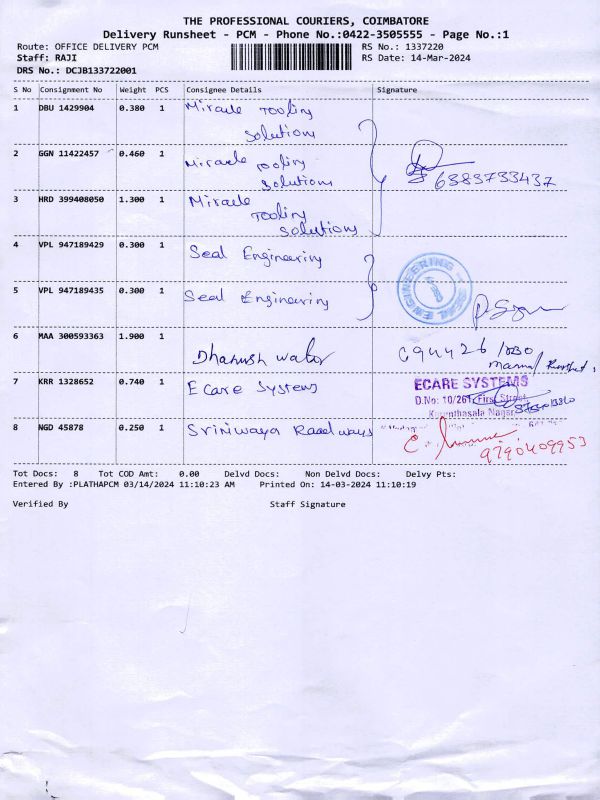 THE PROFESSIONAL COURIERS, COIMBATORE
Delivery Runsheet - PCM - Phone No.:0422-3505555 - Page No.:1
Route: OFFICE DELIVERY PCM RS No.: 1337220
Staff: RAJI RS Date: 14-Mar-2024
DRS No.: DCJB133722001
S No Consignment No Weight PCS Consignee Details Signature
1 DBU 1429904 0.380 1 Miracle Tooling
Solutions
2 GGN 11422457 0.460 1 Miracle Tooling
Solutions 6383733437
3 HRD 399408050 1.300 1 Miracle
Tooling
Solutions
4 VPL 947189429 0.300 1 Seal Engineering
SEAL ENGINEERING
5 VPL 947189435 0.300 1 Seal Engineering
6 MAA 300593363 1.900 1 Dhanush water
7 KRR 1328652 0.740 1 Ecare Systems ECARE SYSTEMS
D.No: 10/261 First Street
8 NGD 45878 0.250 1 Srinivaya Roadways
9790409953
Tot Docs: 8 Tot COD Amt: 0.00 Delvd Docs: Non Delvd Docs: Delvy Pts:
Entered By :PLATHAPCM 03/14/2024 11:10:23 AM Printed On: 14-03-2024 11:10:19
Verified By Staff Signature